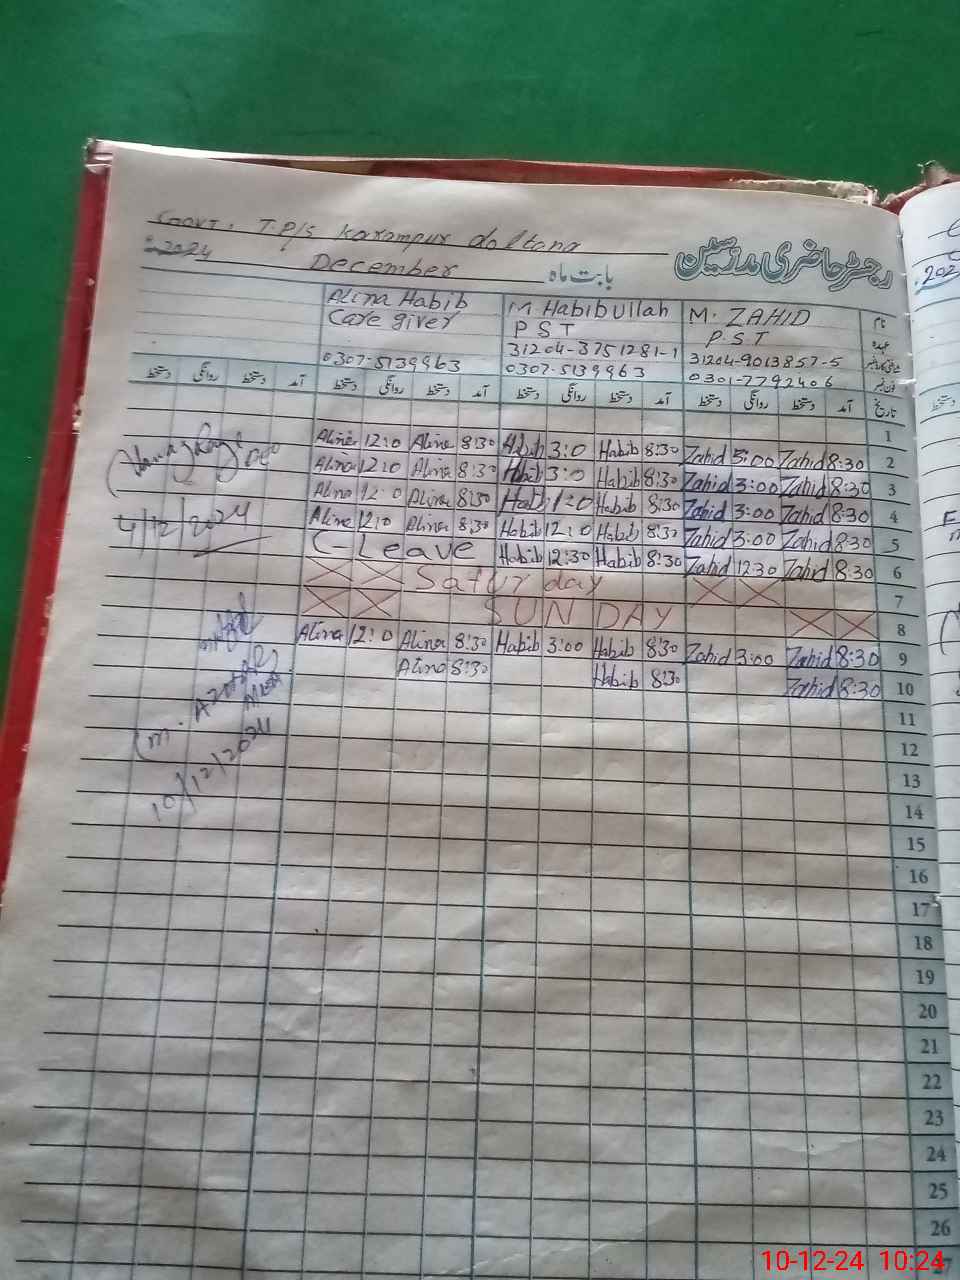 Govt: T.P/S Karampur doltana
رجسٹر حاضری مدرسین
2024 December بابت ماہ
Alina Habib M. Habibullah M. ZAHID نام
Care giver P S T P.S.T عہدہ
31204-3751281-1 31204-9013857-5
0307-5139963 0307-5139963 0301-7792406 فون نمبر
دستخط روانگی دستخط آمد دستخط روانگی دستخط آمد دستخط روانگی دستخط آمد دستخط روانگی دستخط آمد تاریخ
1
Alina 12:0 Alina 8:30 Habib 3:0 Habib 8:30 Zahid 3:00 Zahid 8:30 2
Alina 12:0 Alina 8:30 Habib 3:0 Habib 8:30 Zahid 3:00 Zahid 8:30 3
Alina 12:0 Alina 8:30 Habib 1:0 Habib 8:30 Zahid 3:00 Zahid 8:30 4
Alina 12:0 Alina 8:30 Habib 12:0 Habib 8:30 Zahid 3:00 Zahid 8:30 5
C-Leave Habib 12:30 Habib 8:30 Zahid 12:30 Zahid 8:30 6
Saturday 7
SUNDAY 8
Alina 12:0 Alina 8:30 Habib 3:00 Habib 8:30 Zahid 3:00 Zahid 8:30 9
Alina 8:30 Habib 8:30 Zahid 8:30 10
4/12/2024
10/12/2024
11
12
13
14
15
16
17
18
19
20
21
22
23
24
25
26
27
10-12-24 10:24